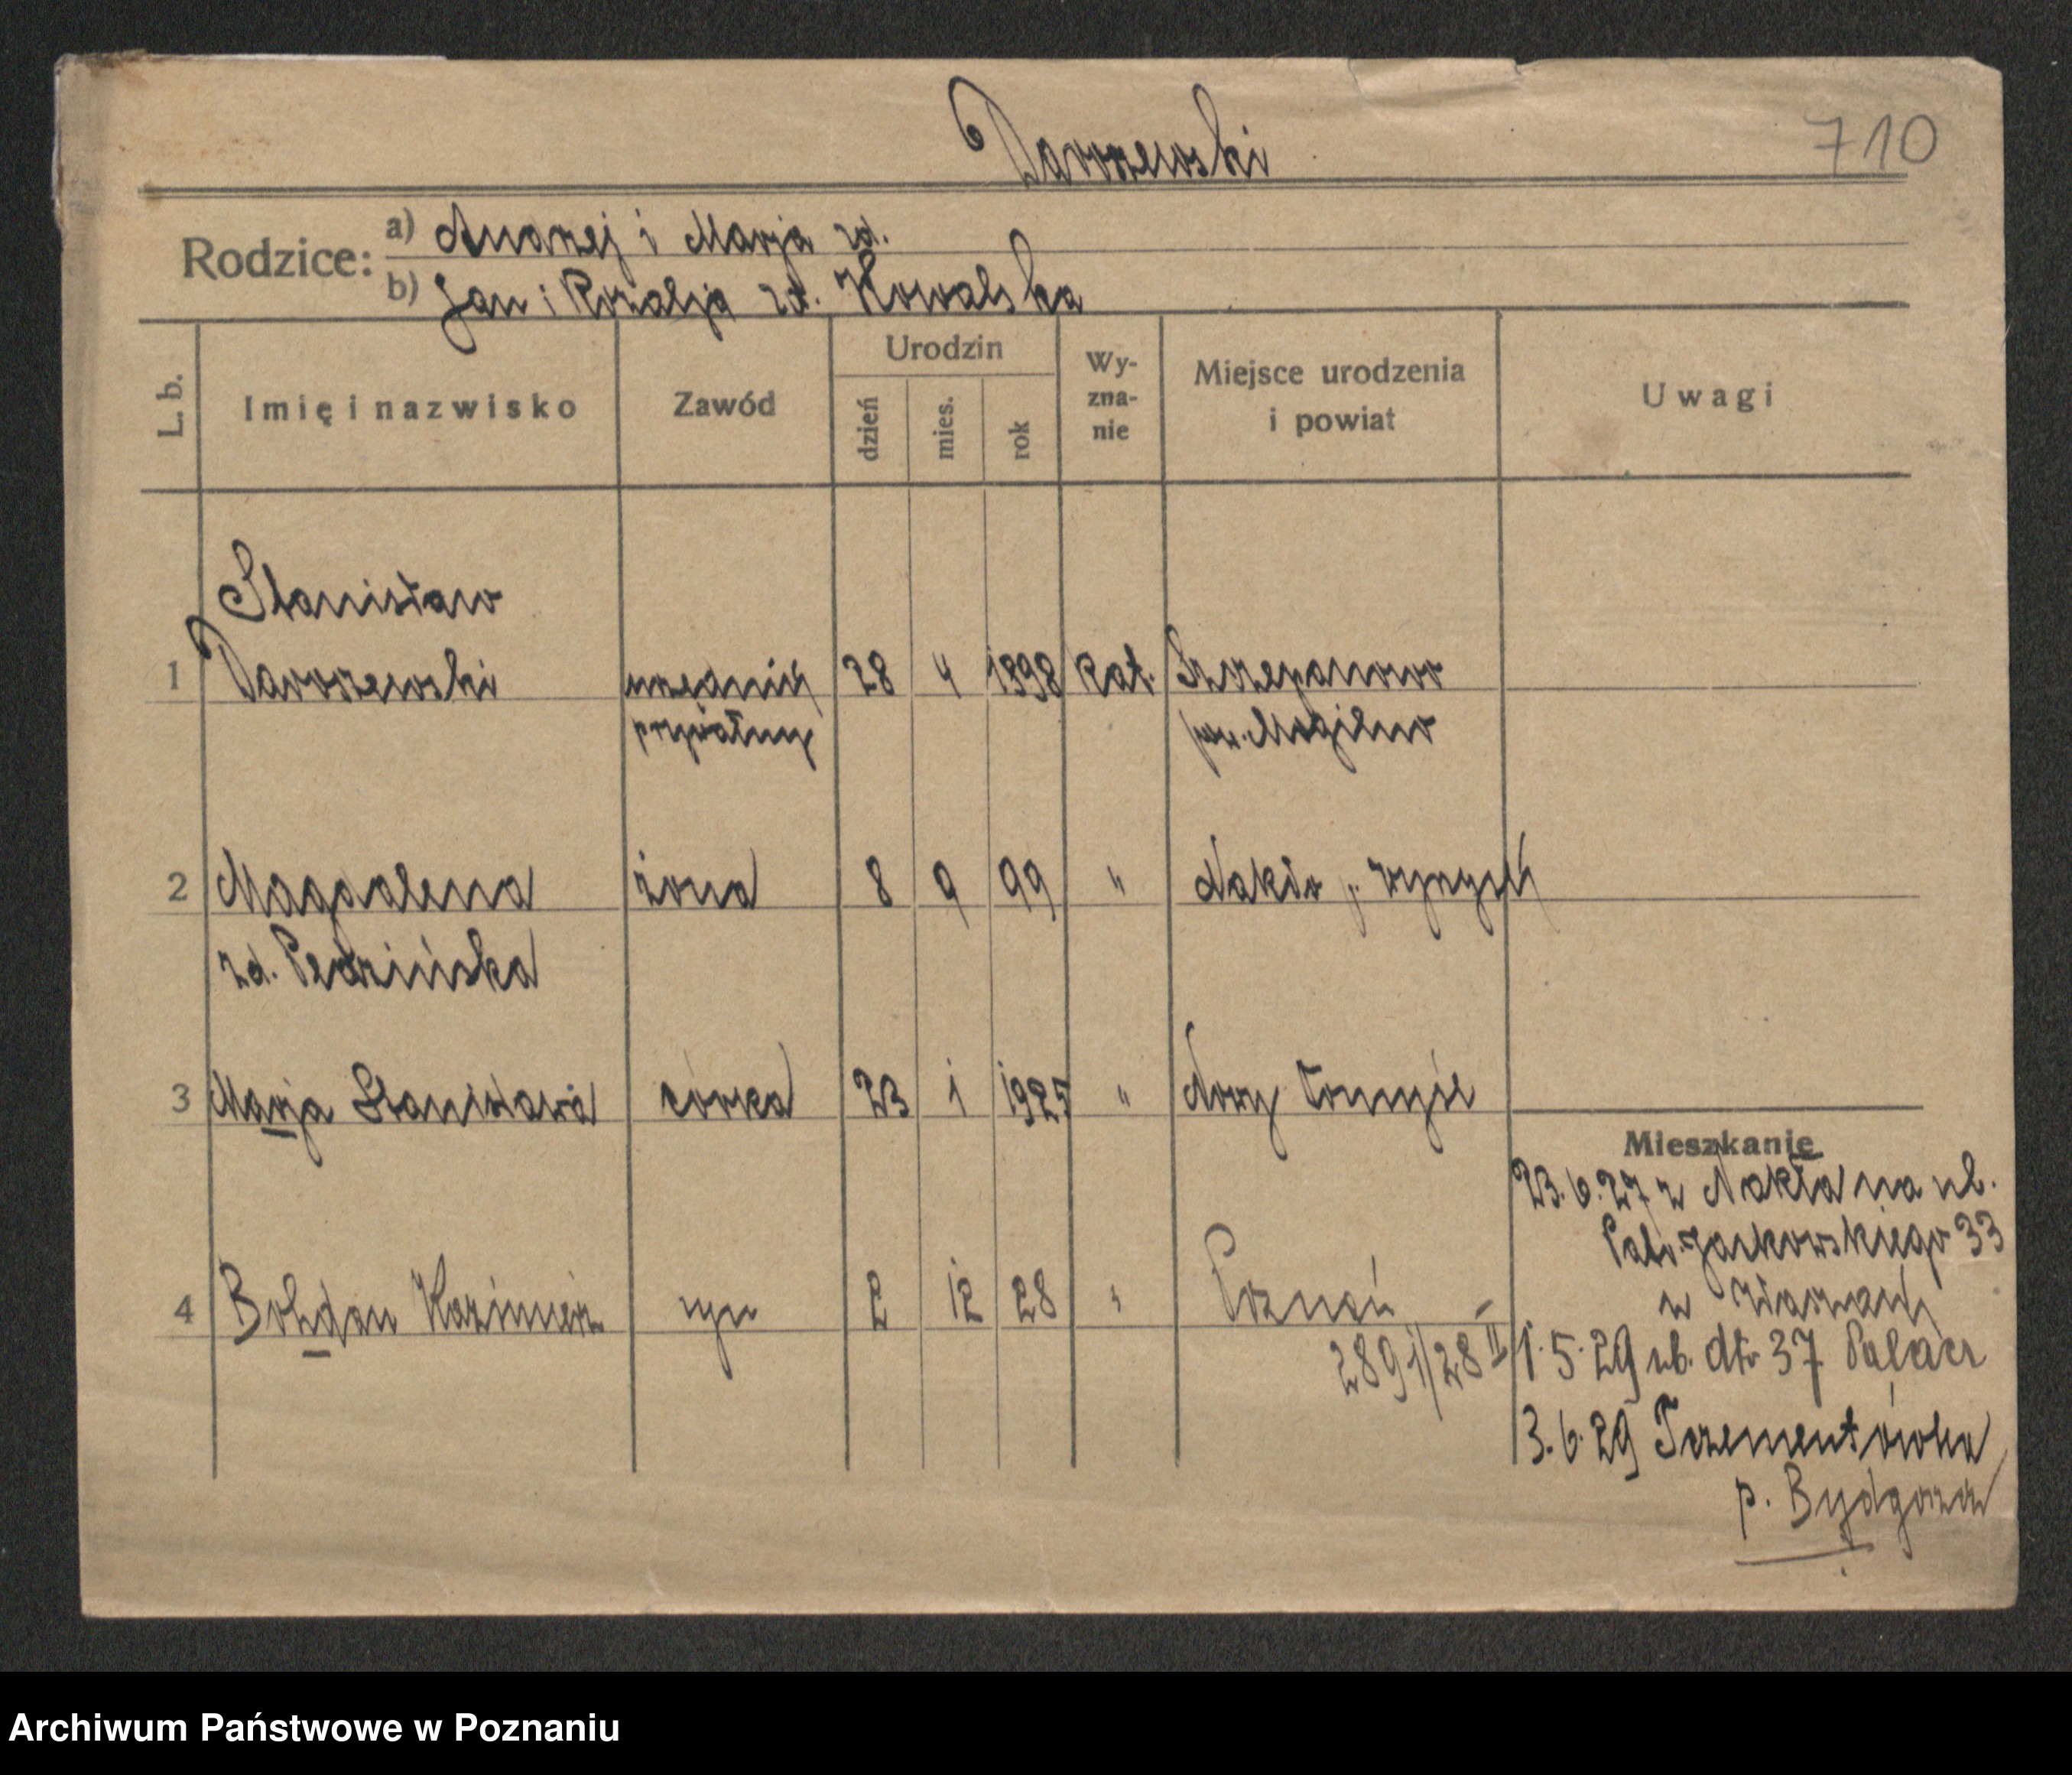 Daroszewski
710
Rodzice: a) Andrzej i Marja zd.
b) Jan i Rozalja zd. Kowalska
L. b.
Imię i nazwisko
Zawód
Urodzin
dzień
mies.
rok
Wy-
zna-
nie
Miejsce urodzenia
i powiat
Uwagi
Stanisław
1 Daroszewski urzędnik 28 4 1898 kat. Szczepanowo
prywatny pow. Mogilno
2 Magdalena żona 8 9 99 " Nakło p. Wyrzysk
zd. Pedzińska
3 Marja Stanisława córka 23 1 1925 " Nowy Tomyśl
Mieszkanie
23.6.27 z Nakła na ul.
Patr. Jackowskiego 33
4 Bohdan Kazimierz syn 2 12 28 " Poznań
2891/28 II
1.5.29 ub. dto 37 Palacz
3.6.29 Trzementówka
p. Bydgoszcz
Archiwum Państwowe w Poznaniu